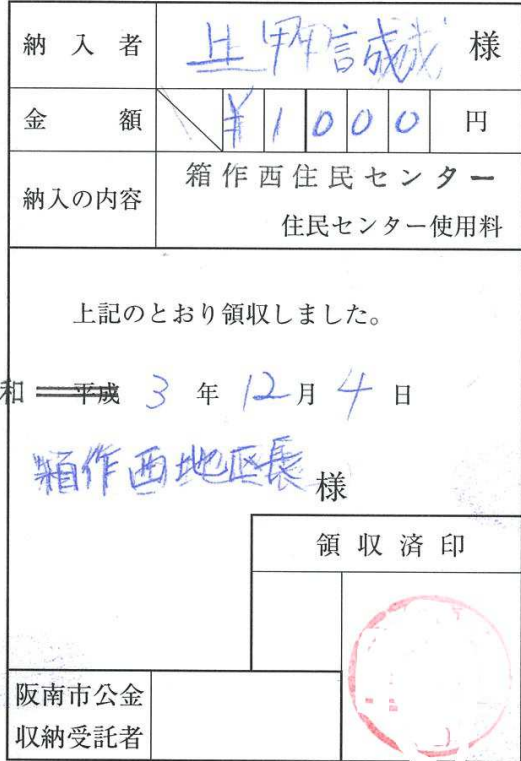 納入者 上甲信誠 様
金額 ¥1000 円
納入の内容 箱作西住民センター
住民センター使用料
上記のとおり領収しました。
和 平成 3 年 12 月 4 日
箱作西地区長 様
領収済印
阪南市公金
収納受託者